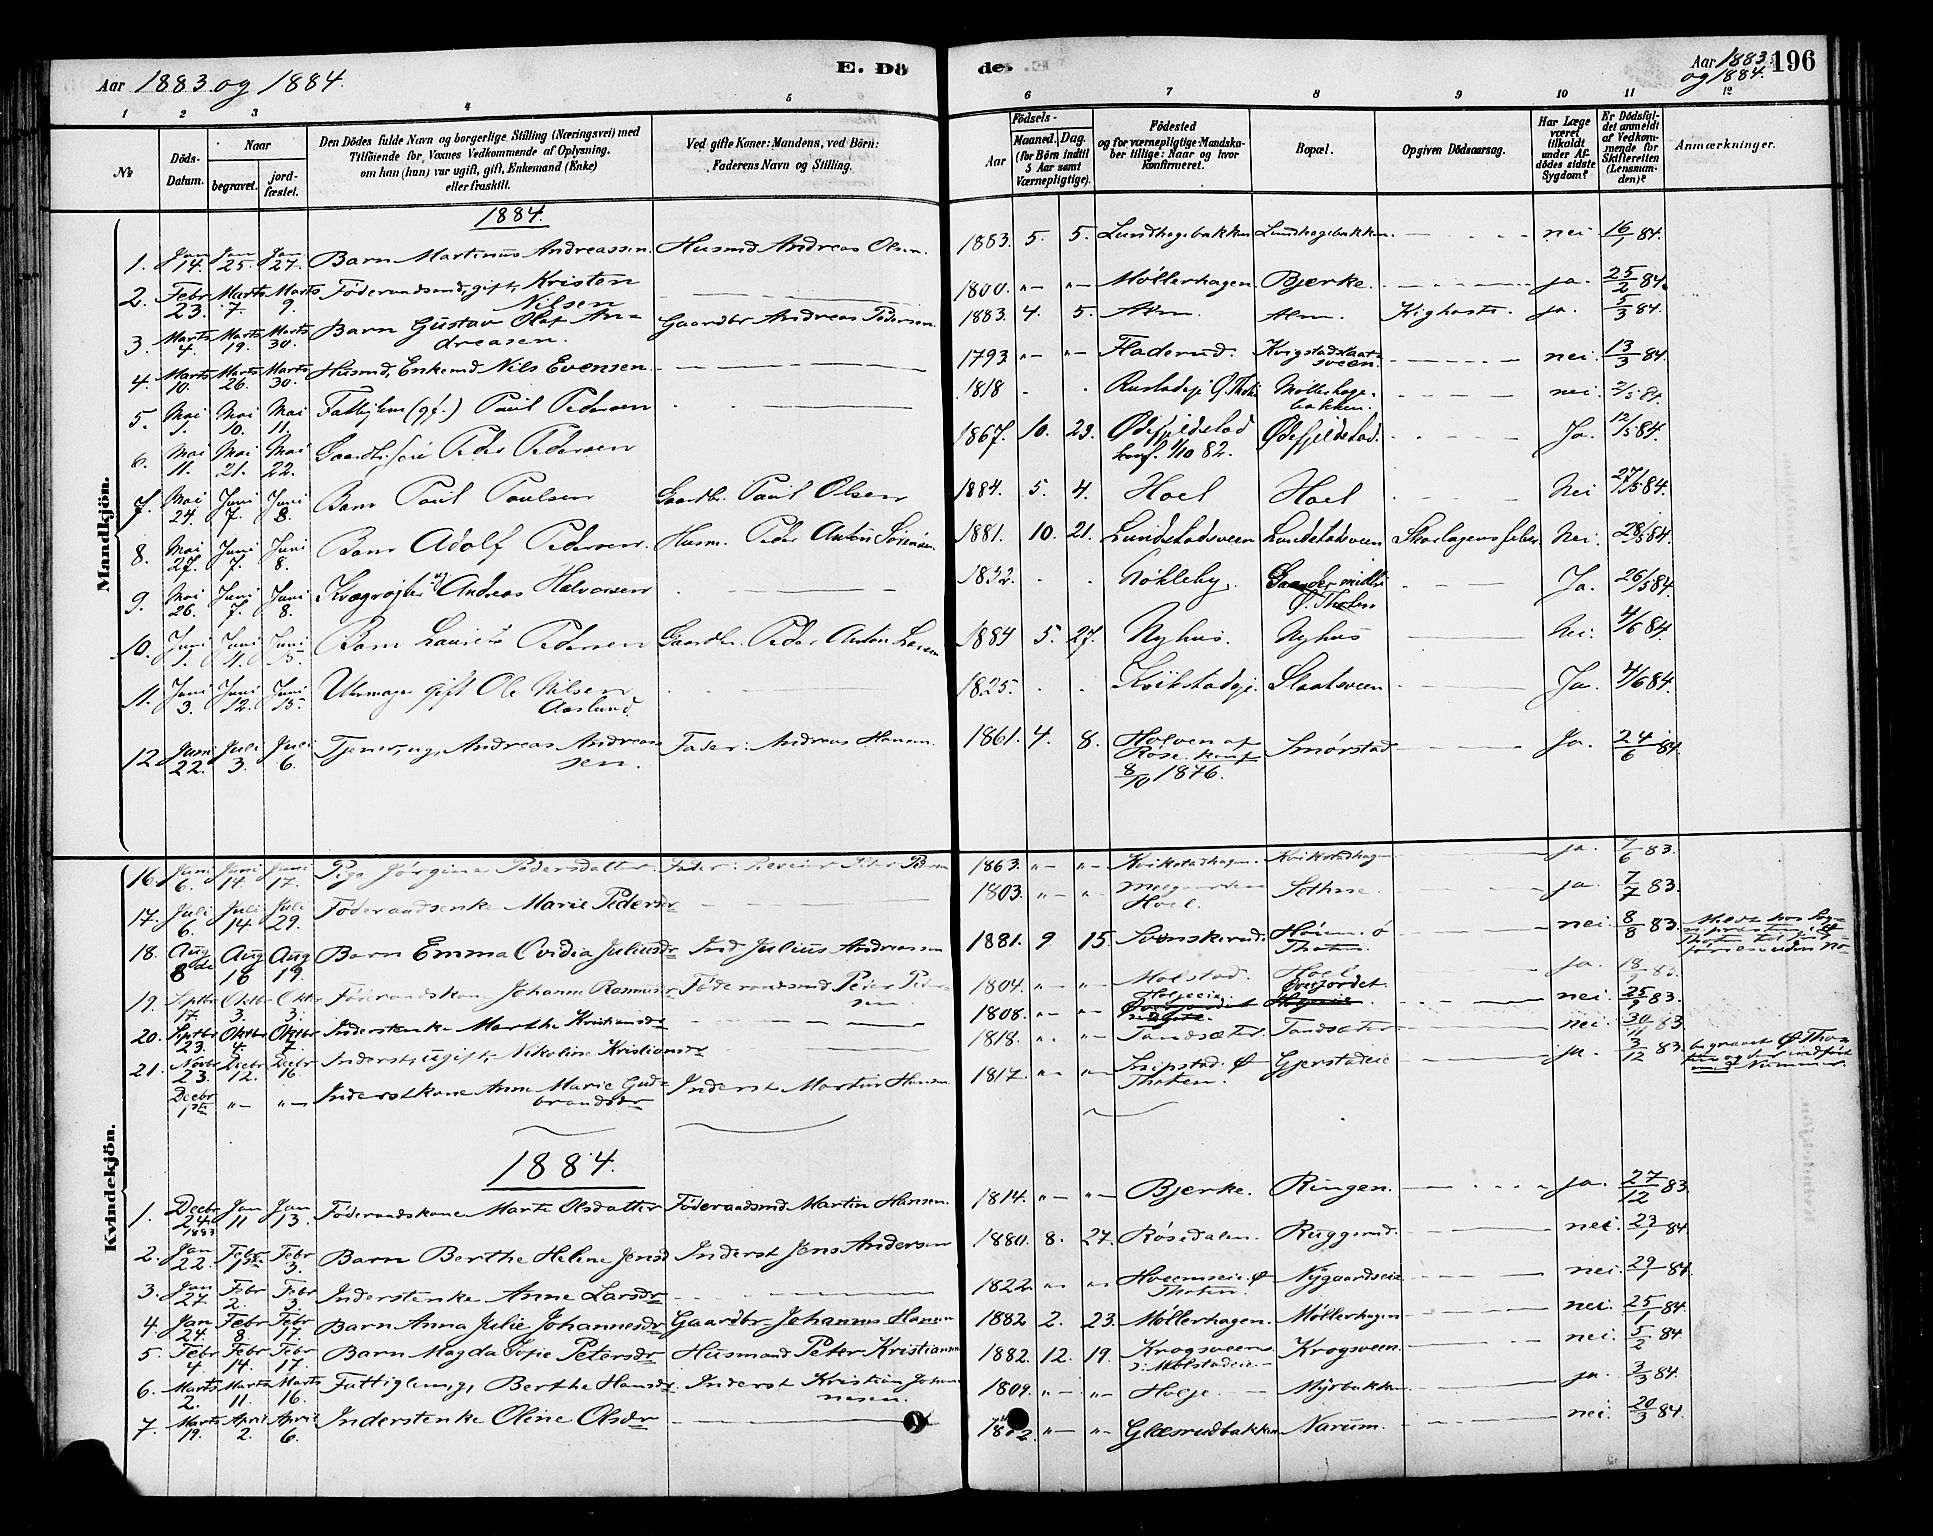 Aar 1883 og 1884. E. Dö de. Aar 1883 og 1884. 196
1 2 3 4 5 6 7 8 9 10 11 12
No
Döds-Datum.
Naar
begravet.
jord-fæstet.
Den Dödes fulde Navn og borgerlige Stilling (Næringsvei) med
Tilföiende for Voxnes Vedkommende af Oplysning,
om han (hun) var ugift, gift, Enkemand (Enke)
eller fraskilt.
Ved gifte Koner: Mandens, ved Börn:
Faderens Navn og Stilling.
Födsels-
Aar
Maaned. Dag.
(for Börn indtil
5 Aar samt
Værnepligtige).
Födested
og for værnepligtige Mandska-
ber tillige: Naar og hvor
konfirmeret.
Bopæl.
Opgiven Dödsaarsag.
Har Læge
været
tilkaldt
under Af-
dödes sidste
Sygdom?
Er Dödsfal-
det anmeldt
af Vedkom-
mende for
Skifteretten
(Lensman-
den)?
Anmærkninger.
Mandkjön.
1884.
1. Jan 14. Jan 25. Jan 27. Barn Martinus Andreassen Husmd Andreas Olsen. 1883. 5. 5. Lundhagebakken Lundhagebakken. nei 16/1 84.
2. Febr 23. Marts 7. Marts 9. Föderaadsmd, gift, Kristen Nilsen 1800. "- "- Møllerhagen Bjerke. ja. 25/2 84.
3. Marts 4. Marts 19. Marts 30. Barn Gustav Olaf Andreasen. Gaardbr Andreas Pedersen. 1883. 4. 5. Alm. Alm. Kighoste. ja. 5/3 84.
4. Marts 10. Marts 26. Marts 30. Husmd, Enkemd Nils Evensen 1793. "- "- Fladerud. nei 13/3 84.
5. Mai 1. Mai 10. Mai 11. Paul Pedersen 1818 Ø. Thoten Møllerhagebakken. nei 84.
6. Mai 11. Mai 21. Mai 22. Peder Pedersen 1867. 10. 23. Ødefjeldstad konf. 1/10 82. Ødefjeldstad. Ja. 12/5 84.
7. Mai 24. Juni 7. Juni 8. Barn Paul Paulsen Gaardbr. Paul Olsen 1884. 5. 4. Hoel Hoel Nei 27/5 84.
8. Mai 27. Juni 7. Juni 8. Barn Adolf Pedersen. Husm. Peder Anton Sörensen 1881. 10. 21. Lundstadsveen Lundstadsveen Skarlagensfeber Nei. 28/5 84.
9. Mai 26. Juni 7. Juni 8. Andreas Halvorsen 1832. Nökleby. Ø. Thoten Ja. 26/5 84.
10. Juni 1. Juni 11. Juni 15. Barn Laurits Pedersen Gaardbr. Peder Anton Larsen 1884 5. 27. Nyhus. Nyhus Nei. 4/6 84.
11. Juni 3. Juni 12. Juni 15. Uhrmager gift Ole Nilsen Aaslund. 1825. Kvikstadeje. Slaatsveen Ja. 4/6 84.
12 Juni 22. Juli 3. Juli 6. Tjener, ug, Andreas Andreassen. Fader: Andreas Hansen. 1861. 4. 8. konf 8/10 1876. Smørstad Ja. 24/6 84
Kvindekjön.
16. Juni 6. Juni 14 Juni 17. Pige Jörgine Pedersdatter. Fader: Peder Pedersen 1863. "- "- Kvikstadhagen. Kvikstadhagen ja. 7/6 83.
17. Juli 6. Juli 14 Juli 29. Föderaadsenke Marie Pedersdr 1803. "- "- Hoel. Sethne. ja. 7/7 83.
18. Aug 8de Aug 18 Aug 19. Barn Emma Ovidia Juliusdr Ind Julius Andreassen 1881. 9 15. Svenskerud. Thoten. nei. 8/8 83.
19. Septbr 17. Oktbr 3. Oktbr 3. Föderaadskone Johanne Rasmusdr Föderaadsmd Peder Pedersen 1804. "- "- Molstad. Hoel ja. 18/9 83.
20. Septbr 23. Oktbr 4. Oktbr 7. Inderstenke Marthe Kristiansdr 1808. "- "- Holjeeie. Øverjordet nei. 25/9 83.
21. Novbr 23. Decbr 12. Decbr 16. Inderst, ugift, Nikoline Kristiansdr 1818. "- "- Tandsæter. Tandsæter nei. 30/11 83.
Decbr 1ste "- "- Inderstkone Anne Marie Gudbrandsdr Inderst Martin Hansen 1817. "- "- Ø Thoten. Gjerstadeie ja. 3/12 83. begravet Ø Thoten og der indført
1884.
1. Decbr 24. 1883 Jan 11 Jan 13. Föderaadskone Marte Olsdatter Föderaadsmd Martin Hansen. 1814. "- "- Bjerke. Ringen. ja. 27/12 83
2. Jan 22. Febr 1ste Febr 3. Barn Berthe Helene Jensd Inderst Jens Andersen 1880. 8. 27. Rösedalen. Ruggerud. nei. 23/1 84.
3. Jan 27 Febr 2. Febr 3 Inderstenke Anne Larsdr 1822 "- "- Hveemseie. Ø Thoten. Nygaardseie nei. 29/1 84.
4. Jan 24. Febr 8. Febr 17. Barn Anna Julie Johannesdr Gaardbr Johannes Hansen 1882 2. 23. Møllerhagen. Møllerhagen nei. 25/1 84.
5. Febr 4. Febr 14. Febr 17. Barn Magda Sofie Petersdr Husmand Peter Kristiansen 1882. 12. 19. Krogsveen Krogsveen. nei. 5/2 84
6. Marts 2. Marts 11. Marts 16. Fattiglem, g, Berthe Hansdr. Inderst Kristian Johannesen. 1809. "- "- Holje. Myrbakken ja. 3/3 84.
7. Marts 19. April 2. April 6. Inderstenke Oline Olsdr "- "- Glæsrudbakken Narum. nei. 20/3 84.